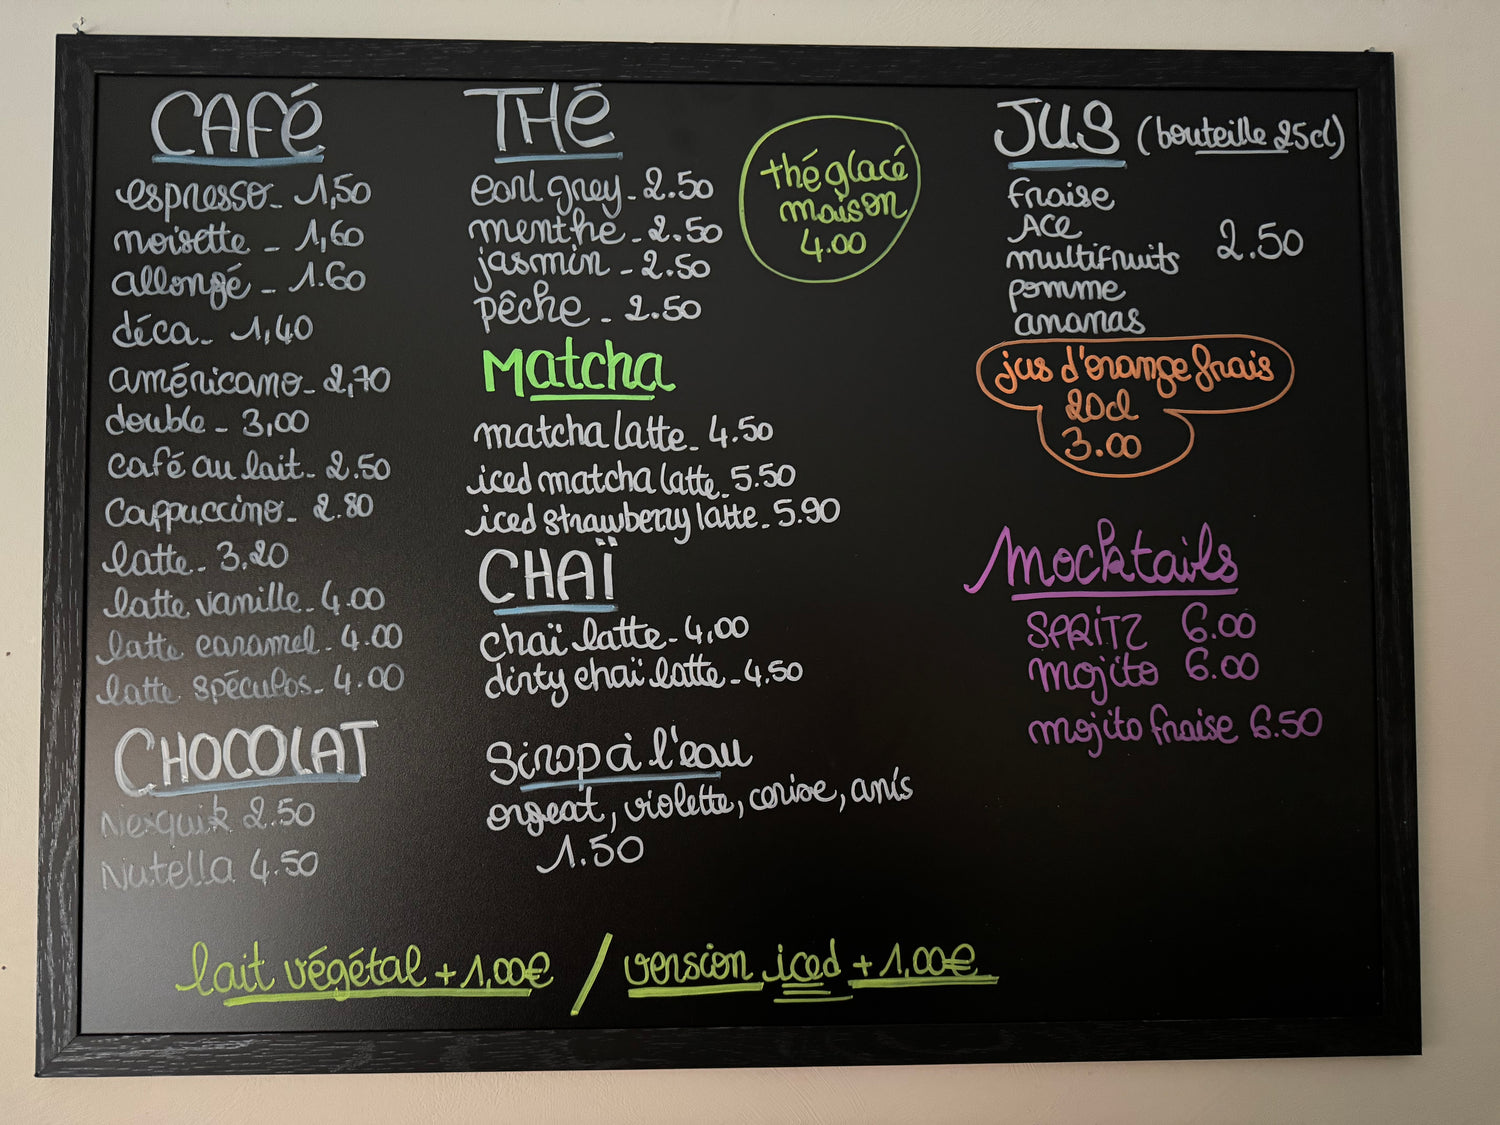 CAFé
espresso - 1,50
noisette - 1,60
allongé - 1.60
déca - 1,40
américano - 2,70
double - 3,00
café au lait - 2.50
Cappuccino - 2.80
latte - 3.20
latte vanille - 4.00
latte caramel - 4.00
latte spéculos - 4.00
CHOCOLAT
Nesquik 2.50
Nutella 4.50
THé
earl grey - 2.50
menthe - 2.50
jasmin - 2.50
pêche - 2.50
thé glacé
maison
4.00
Matcha
matcha latte - 4.50
iced matcha latte - 5.50
iced strawberry latte - 5.90
CHAÏ
chaï latte - 4,00
dirty chaï latte - 4.50
Sirop à l'eau
orgeat, violette, cerise, anis
1.50
JUS (bouteille 25cl)
fraise
ACE
multifruits 2.50
pomme
ananas
jus d'orange frais
20cl
3.00
Mocktails
SPRiTZ 6.00
Mojito 6.00
mojito fraise 6.50
lait végétal + 1,00€ / version iced + 1,00€